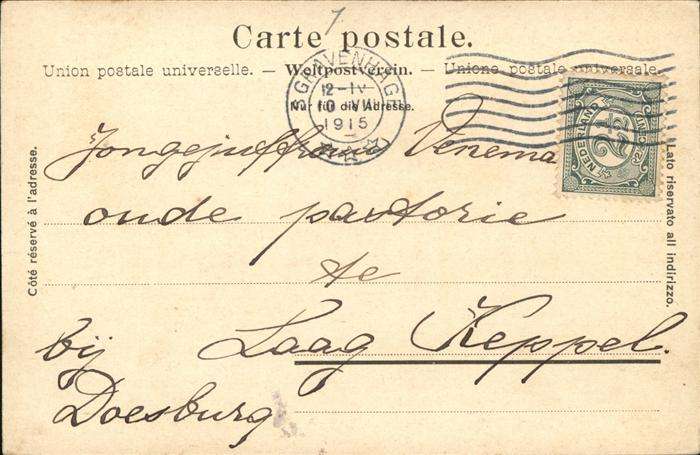 7
Carte postale.
Union postale universelle. — Weltpostverein. — Unione postale universale.
Nur für die Adresse.
'S GRAVENHAGE
12-1V
10 VII
1915
NEDERLAND
2½
CENT
Jongejuffrouw Venema
oude pastorie
te
Laag Keppel.
bij
Doesburg
Côté réservé à l'adresse.
Lato riservato all indirizzo.